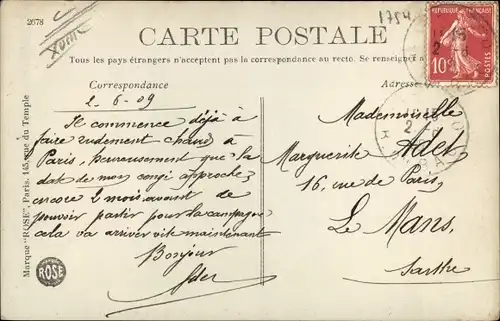 2678
1784
CARTE POSTALE
RÉPUBLIQUE FRANÇAISE
10c
POSTES
Tous les pays étrangers n'acceptent pas la correspondance au recto. Se renseigner à
Correspondance
Adresse
2-6-09
Il commence déjà à
faire rudement chaud à
Paris. heureusement que la
date de mon congé approche,
encore 2 mois avant de
pouvoir partir pour la campagne
cela va arriver vite maintenant
Bonjour
Mademoiselle
Marguerite Adet
16, rue de Paris,
Le Mans,
Sarthe
Marque "ROSE", Paris, 145, rue du Temple
ROSE